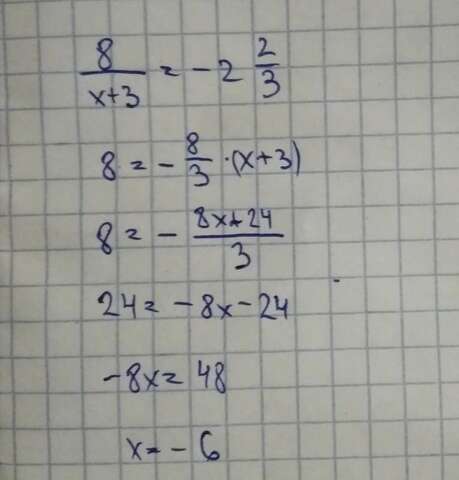 8/(x+3) = -2 2/3
8 = -8/3 ·(x+3)
8 = -(8x+24)/3
24 = -8x-24
-8x = 48
x = -6